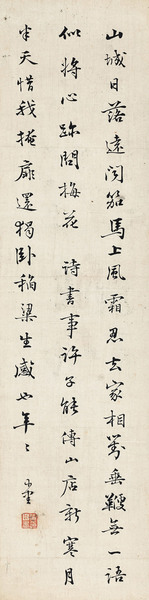 山城日落遠聞笳馬上風霜忍去家相對垂鞭無一語
似將心跡問梅花　詩書事許子能傳山店新寒月
半天惜我掩扉還獨卧稻粱生感也年〻